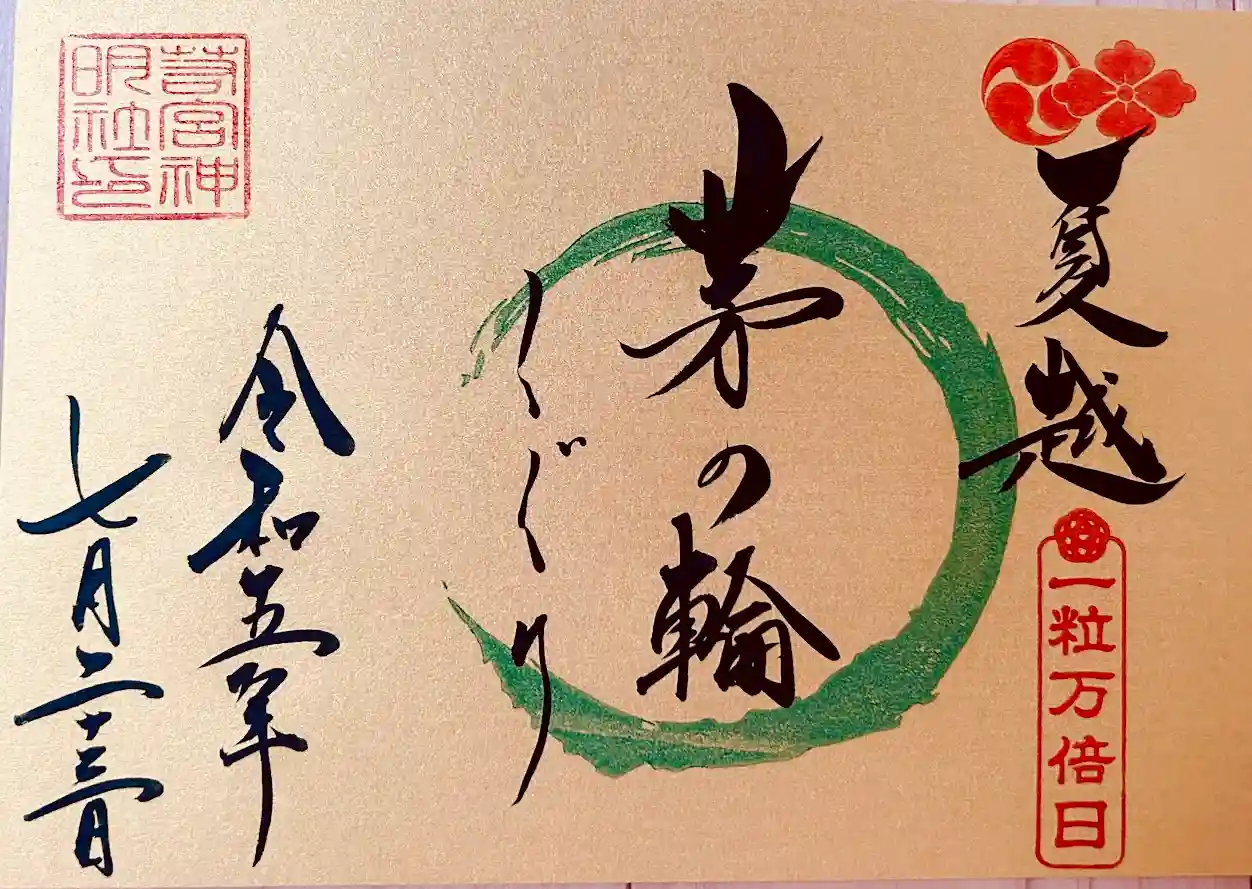 夏越
一粒万倍日
茅の輪
くぐり
令和五年
七月二十三日
若宮神
明社印